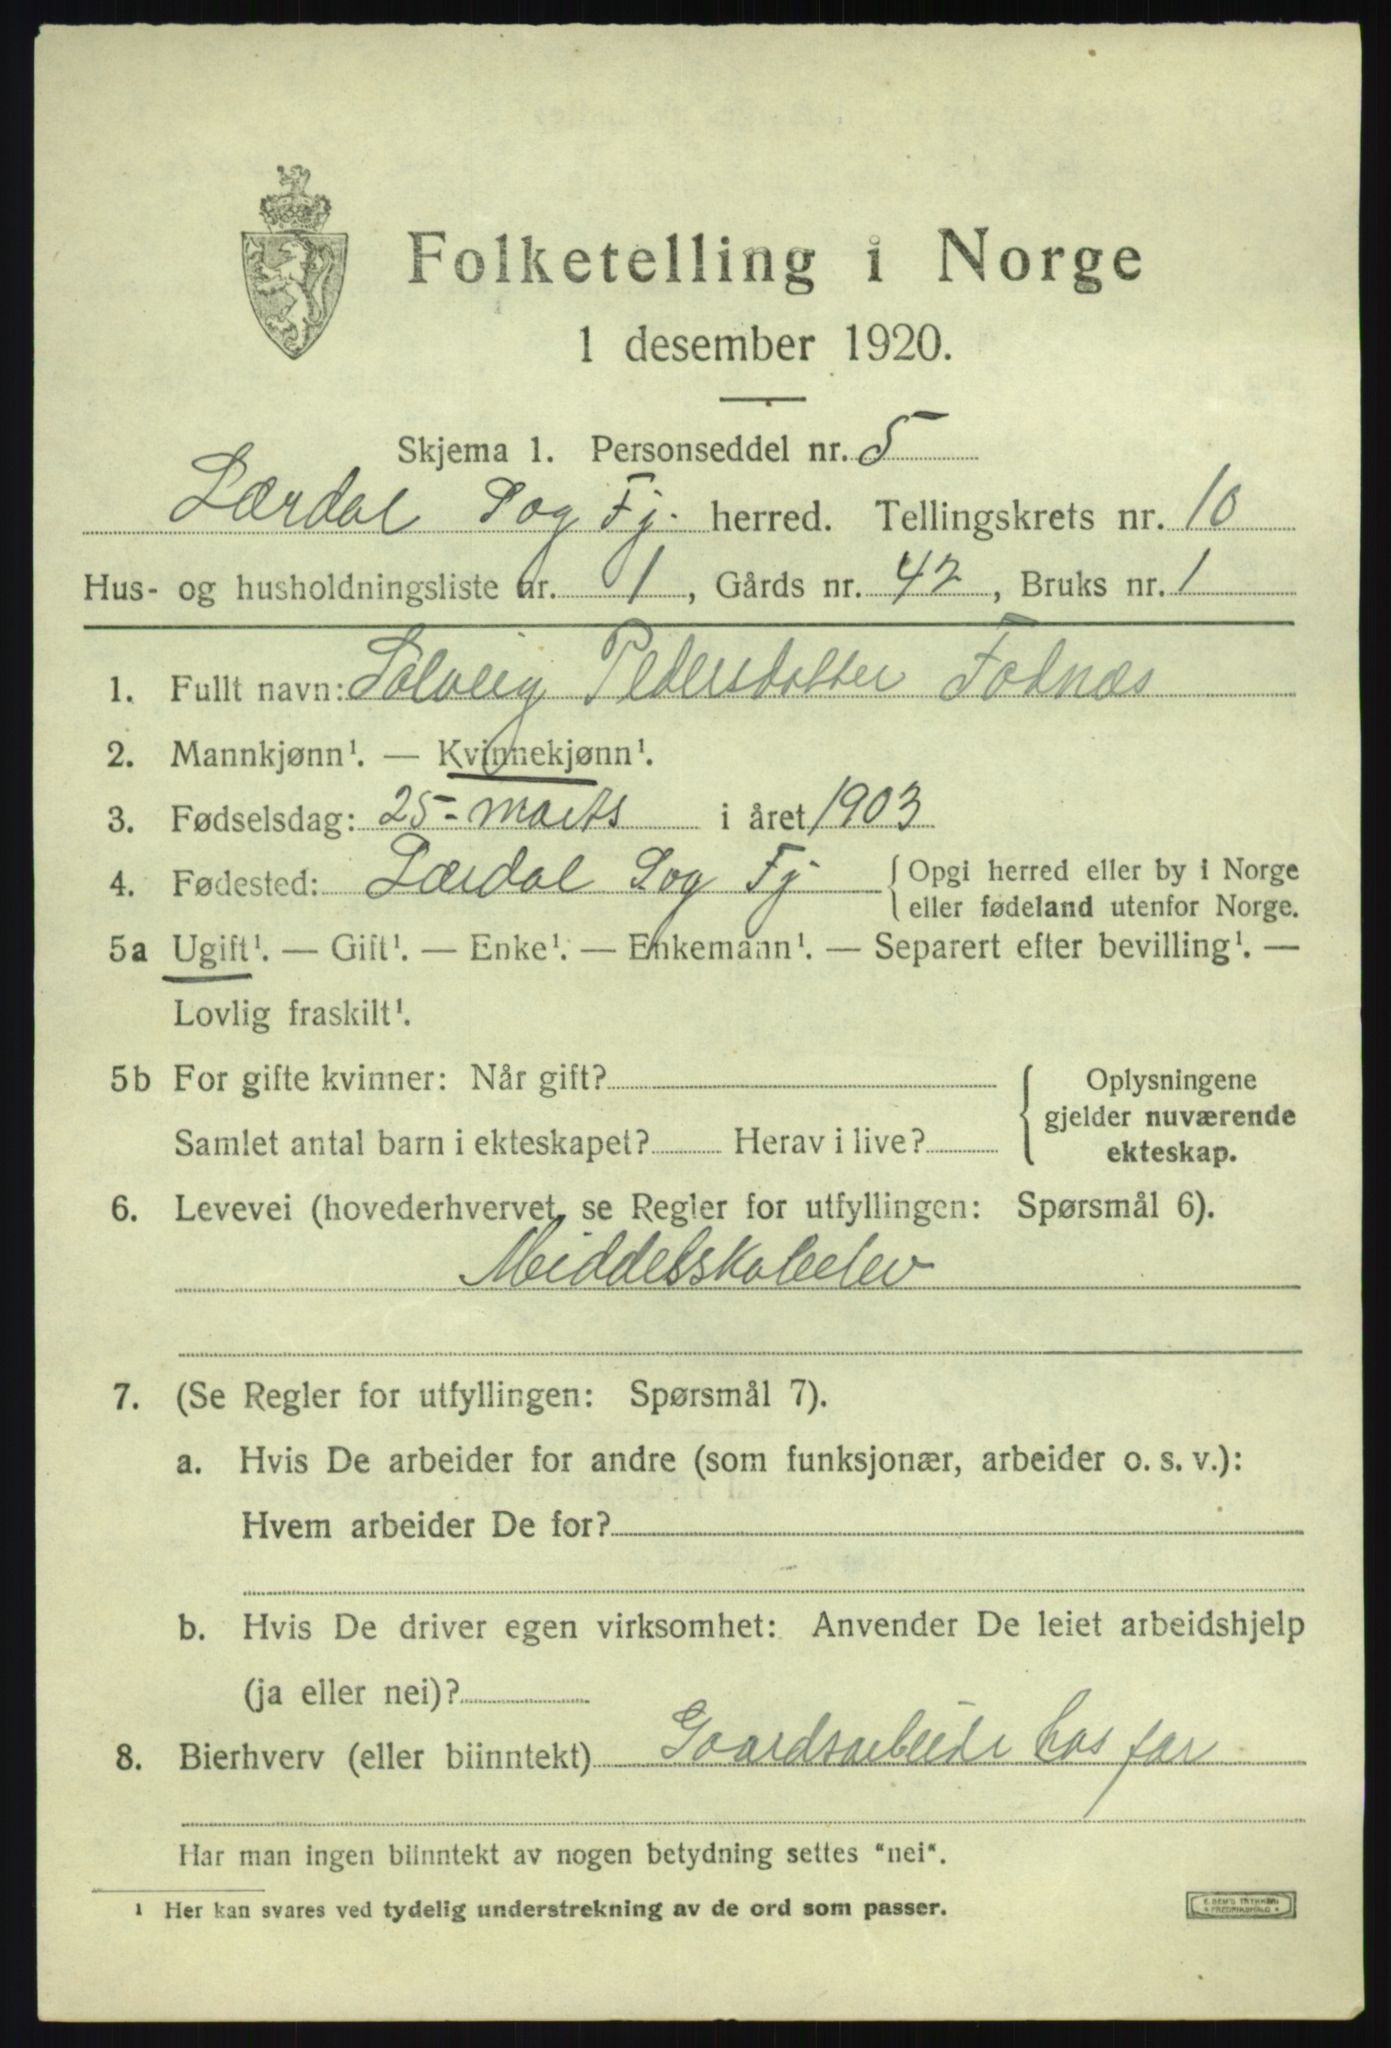 Folketelling i Norge
1 desember 1920.
Skjema 1. Personseddel nr. 5
Lærdal Sog Fj. herred. Tellingskrets nr. 10
Hus- og husholdningsliste nr. 1, Gårds nr. 42, Bruks nr. 1
1. Fullt navn: Solveig Pedersdatter Fodnæs
2. Mannkjønn¹. — Kvinnekjønn¹.
3. Fødselsdag: 25-marts i året 1903
4. Fødested: Lærdal Sog Fj { Opgi herred eller by i Norge
eller fødeland utenfor Norge.
5a Ugift¹. — Gift¹. — Enke¹. — Enkemann¹. — Separert efter bevilling¹. —
Lovlig fraskilt¹.
5b For gifte kvinner: Når gift? { Oplysningene
gjelder nuværende
Samlet antal barn i ekteskapet? Herav i live?
ekteskap.
6. Levevei (hovederhvervet, se Regler for utfyllingen: Spørsmål 6).
Middelskoleelev
7. (Se Regler for utfyllingen: Spørsmål 7).
a. Hvis De arbeider for andre (som funksjonær, arbeider o. s. v.):
Hvem arbeider De for?
b. Hvis De driver egen virksomhet: Anvender De leiet arbeidshjelp
(ja eller nei)?
8. Bierhverv (eller biinntekt) Gaardsarbeide hos far
Har man ingen biinntekt av nogen betydning settes "nei".
¹ Her kan svares ved tydelig understrekning av de ord som passer.